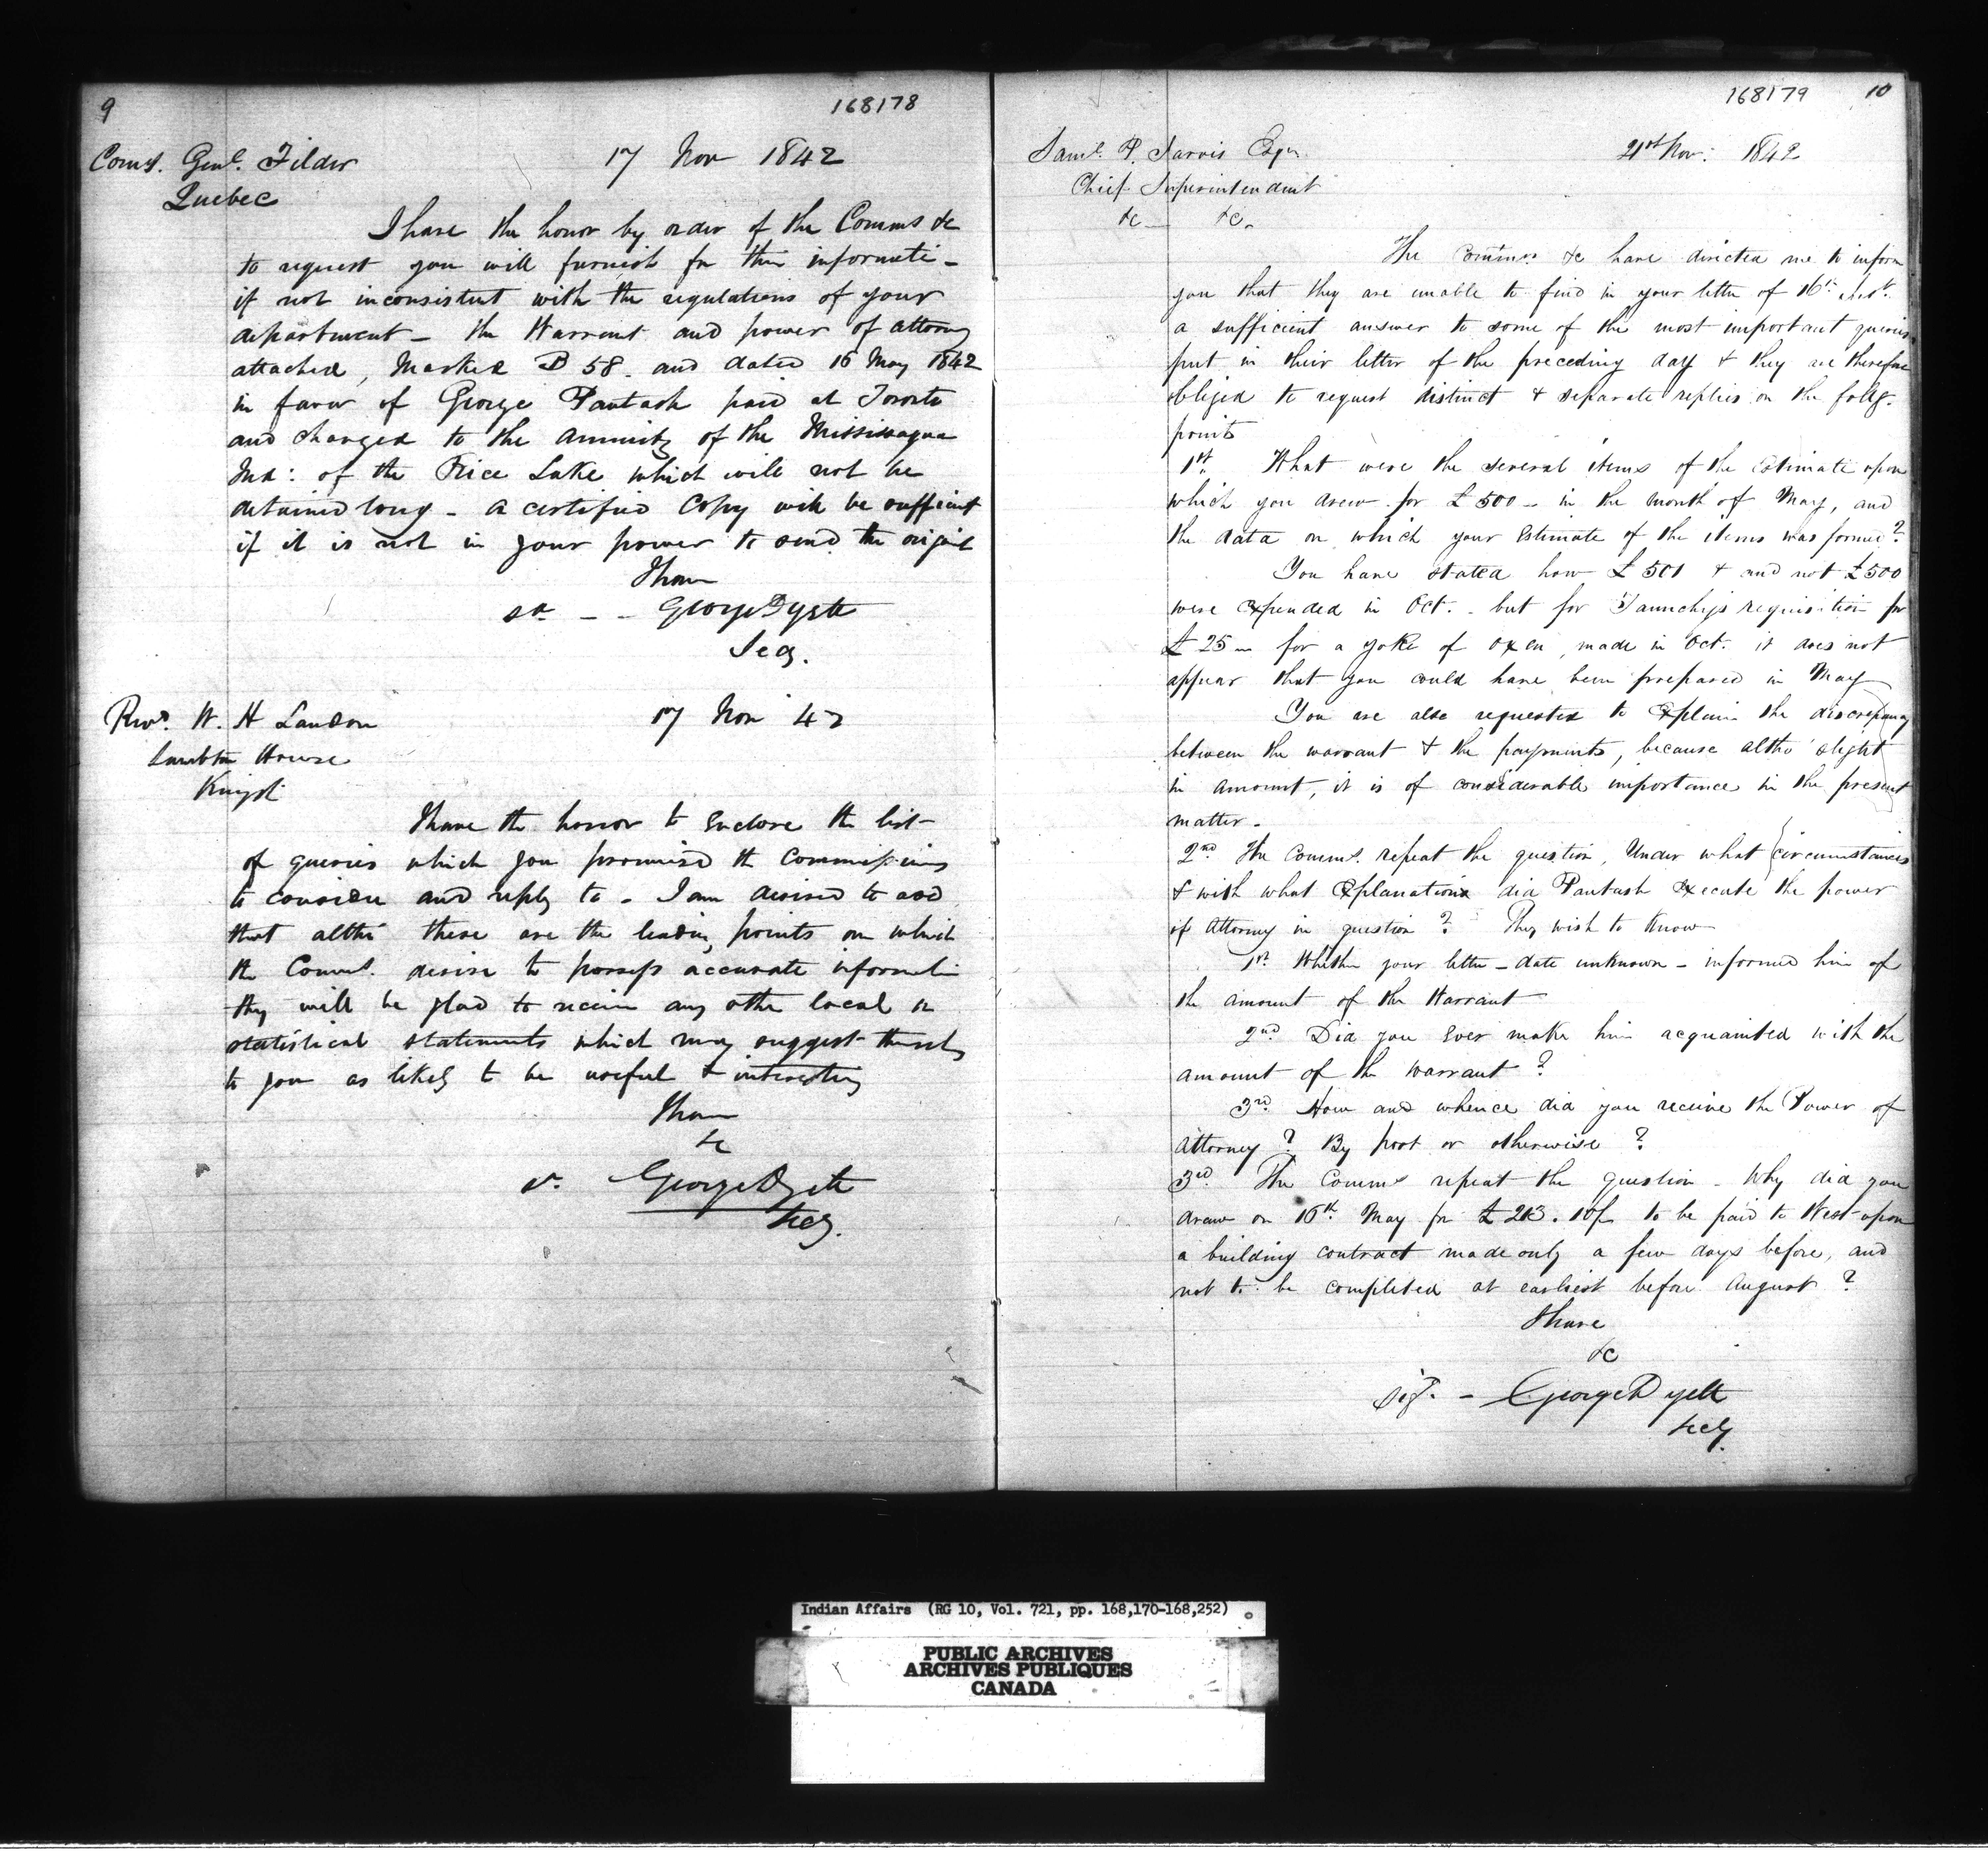 9
168178
Comy. Genl. Filder
Quebec
17 Nov 1842
I have the honor by order of the Comms &c
to request you will furnish for their informati-
if not inconsistent with the regulations of your
department - the Warrant and power of attorney
attached, Marked B 58. and dated 16 May 1842
in favor of George Pautash paid at Toronto
and charged to the annuity of the Mississagua
Ind: of the Rice Lake which will not be
detained long - a certified Copy will be sufficient
if it is not in your power to send the original
I have
sd - - George Dyett
Secy.
Revd. W. H Landon
Lambton House
Kingst
17 Nov 42
I have the honor to Enclose the list
of queries which you promised the Commissioners
to consider and reply to - I am desired to add
that altho' these are the leading points on which
the Comms. desire to possess accurate informati-
they will be glad to receive any other local or
statistical statements which may suggest themselves
to you as likely to be useful & interesting
I have
&c
sd. George Dyett
Secy.
168179 10
Saml. P. Jarvis Esqr.
Chief Superintendent
&c &c.
21st Nov: 1842
The Commrs &c have directed me to inform
you that they are unable to find in your letter of 16th inst.
a sufficient answer to some of the most important queries
put in their letter of the preceding day & they are therefore
obliged to request distinct & separate replies on the follg.
points
1st. What were the several items of the Estimate upon
which you drew for £500 - in the month of May, and
the data on which your Estimate of the items was formed?
You have stated how £501 & and not £500
were expended in Oct. - but for requisition for
£25 - for a yoke of oxen, made in Oct. it does not
appear that you could have been prepared in May
You are also requested to Explain the discrepancy
between the warrant & the payments, because altho' slight
in amount, it is of considerable importance in the present
matter.
2nd. The Comms. repeat the question, Under what circumstances
& with what Explanations did Pautash Execute the power
of Attorney in question? They wish to Know
1st. Whether your letter - date unknown - informed him of
the amount of the Warrant
2nd Did you Ever make him acquainted with the
amount of the Warrant?
3rd. How and whence did you receive the Power of
Attorney? By post or otherwise?
3rd. The Comms repeat the question - Why did you
draw on 16th May for £213. 10/- to be paid to West upon
a building contract made only a few days before, and
not to be completed at earliest before August?
I have
&c
sigd. - George Dyett
Secy.
Indian Affairs (RG 10, Vol. 721, pp. 168,170-168,252)
PUBLIC ARCHIVES
ARCHIVES PUBLIQUES
CANADA